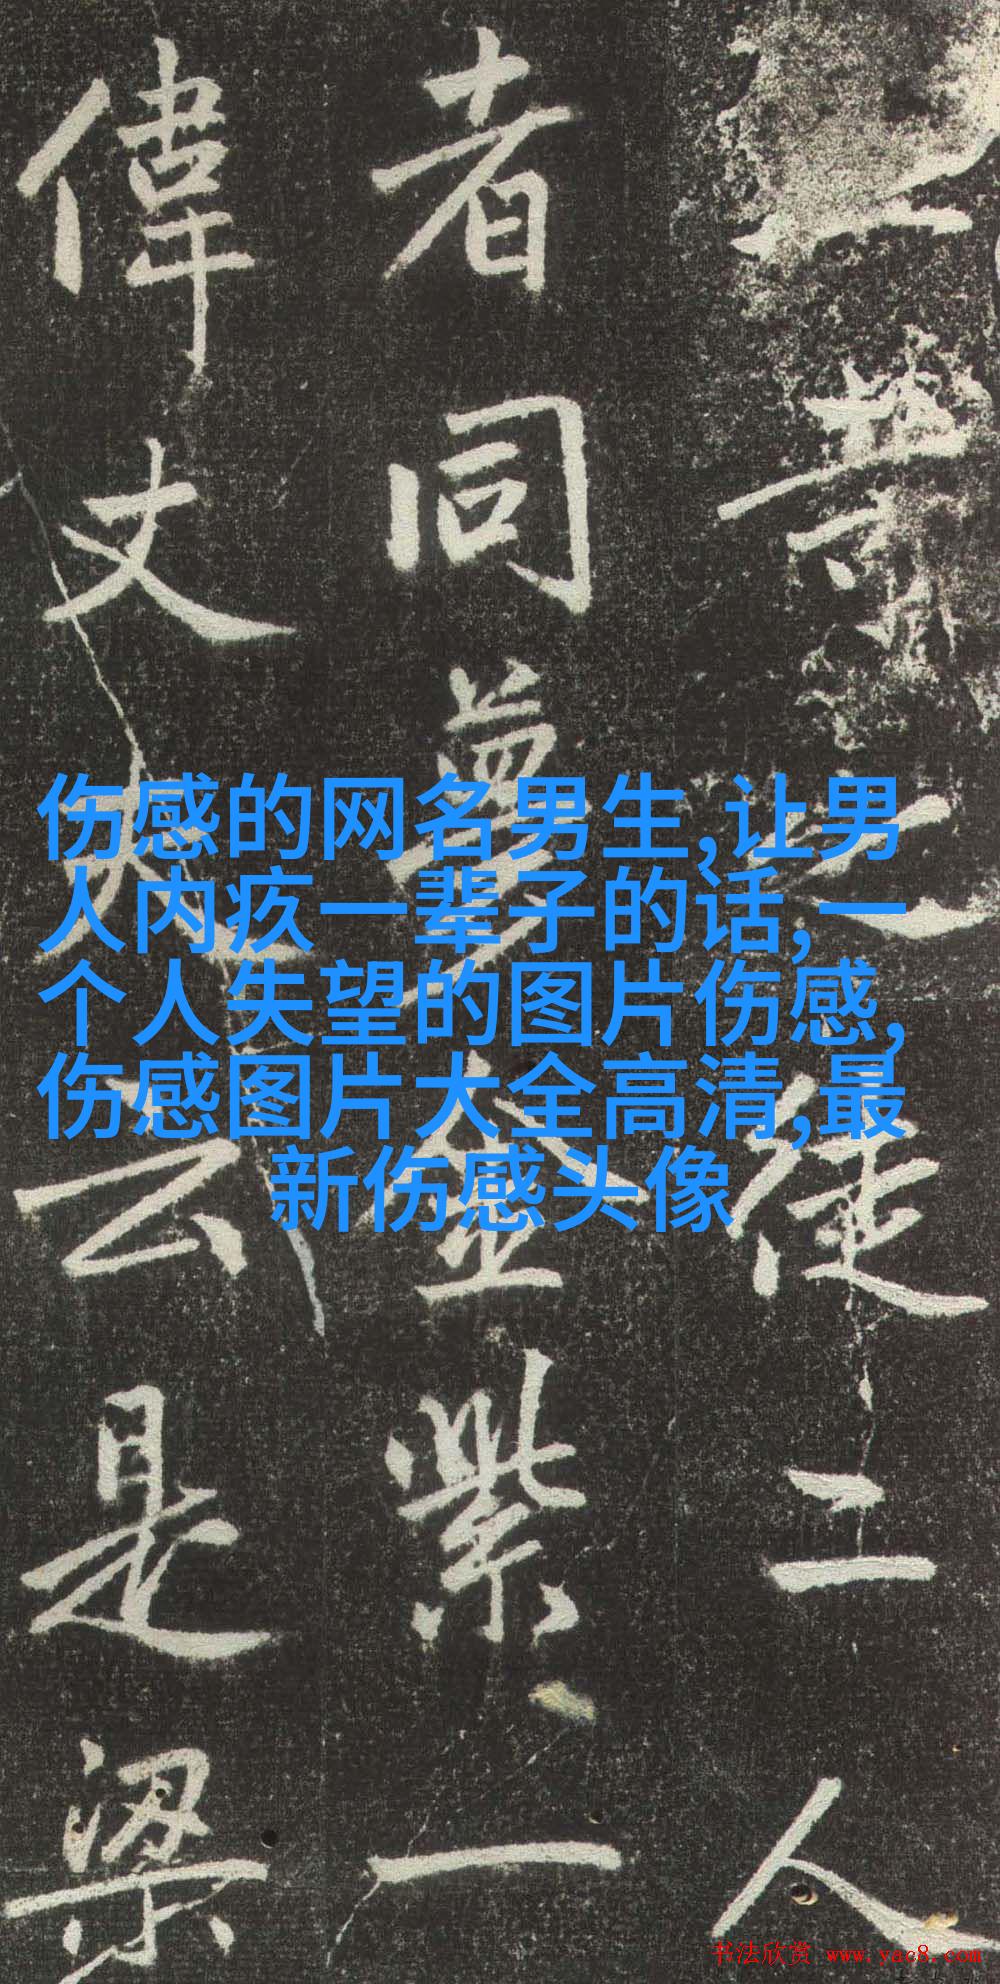 之徒二人
者同夢金紫一
偉丈夫云是梁
伤感的网名男生,让男
人内疚一辈子的话,一
个人失望的图片伤感,
伤感图片大全高清,最
新伤感头像
书法欣赏 www.yac8.com